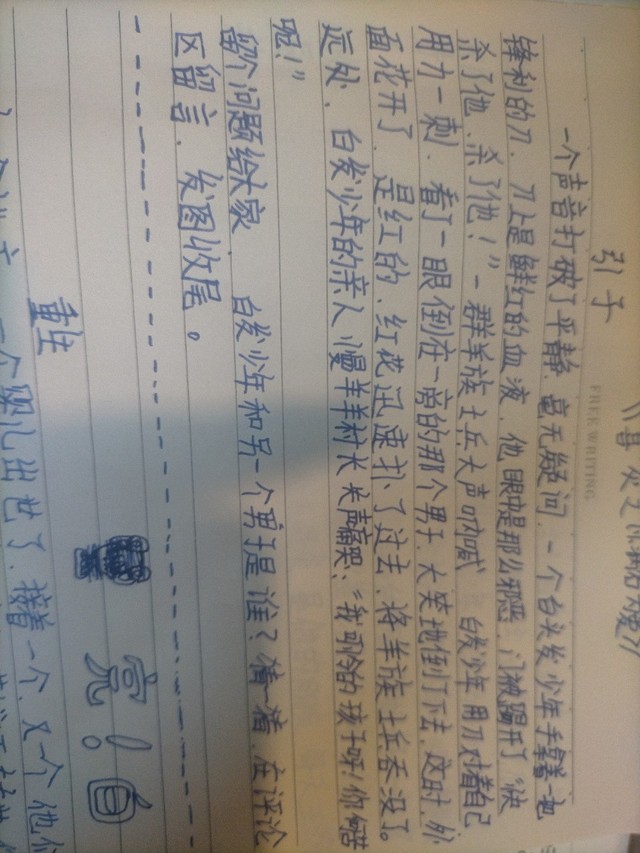 引子
FREE WRITING
一个声音打破了平静，毫无疑问，一个白头发少年手拿着一把
锋利的刀，刀上是鲜红的血液，他眼中是那么邪恶，门被踢开了“快
杀了他，杀了他！”一群羊族士兵大声呐喊 白发少年用刀对着自己
用力一刺，看了一眼倒在一旁的那个男子，大笑地倒了下去，这时，外
面花开了，是红的，红花迅速扑了过去，将羊族士兵吞没了。
远处，白发少年的亲人慢羊羊村长失声痛哭：“我可怜的孩子呀！你何苦
呢！”
留个问题给大家， 白发少年和另一个男子是谁？猜一猜，在评论
区留言，发图收尾。
完！
重生
一个婴儿出世了，接着一个，又一个他们